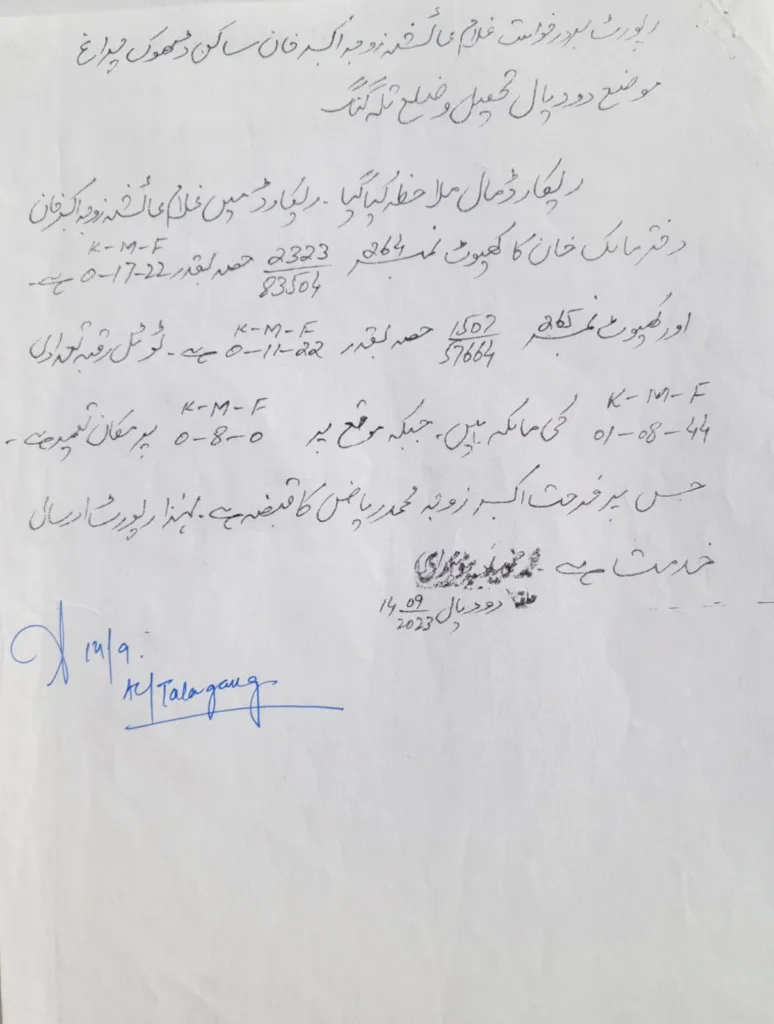 رپورٹ بر درخواست غلام عائشہ زوجہ اکبر خان ساکن ڈھوک چراغ
موضع دودیال تحصیل و ضلع تلہ گنگ
ریکارڈ مال ملاحظہ کیا گیا۔ ریکارڈ میں غلام عائشہ زوجہ اکبر خان
دختر مانک خان کا کھیوٹ نمبر 264 2323/83504 حصہ بقدر K-M-F 0-17-22 ہے۔
اور کھیوٹ نمبر 265 1507/57664 حصہ بقدر K-M-F 0-11-22 ہے۔ ٹوٹل رقبہ تعدادی
K-M-F 01-08-44 کی مالکہ ہیں۔ جبکہ موقع پر K-M-F 0-8-0 پر مکان تعمیر ہے۔
جس پر فرحت اکبر زوجہ محمد ریاض کا قبضہ ہے۔ لہٰذا رپورٹ ارسال
خدمت ہے
دودیال 14 09/2023
14/9.
AC/Talagang